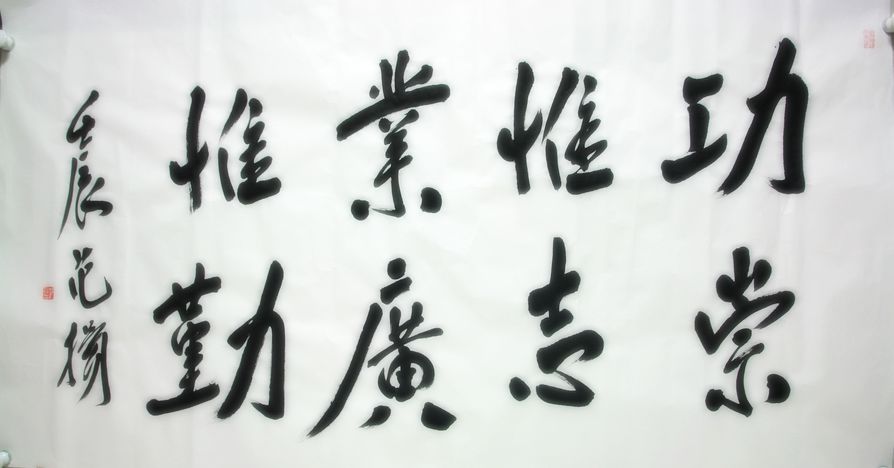 功崇
惟志
業廣
惟勤
壬辰范攅